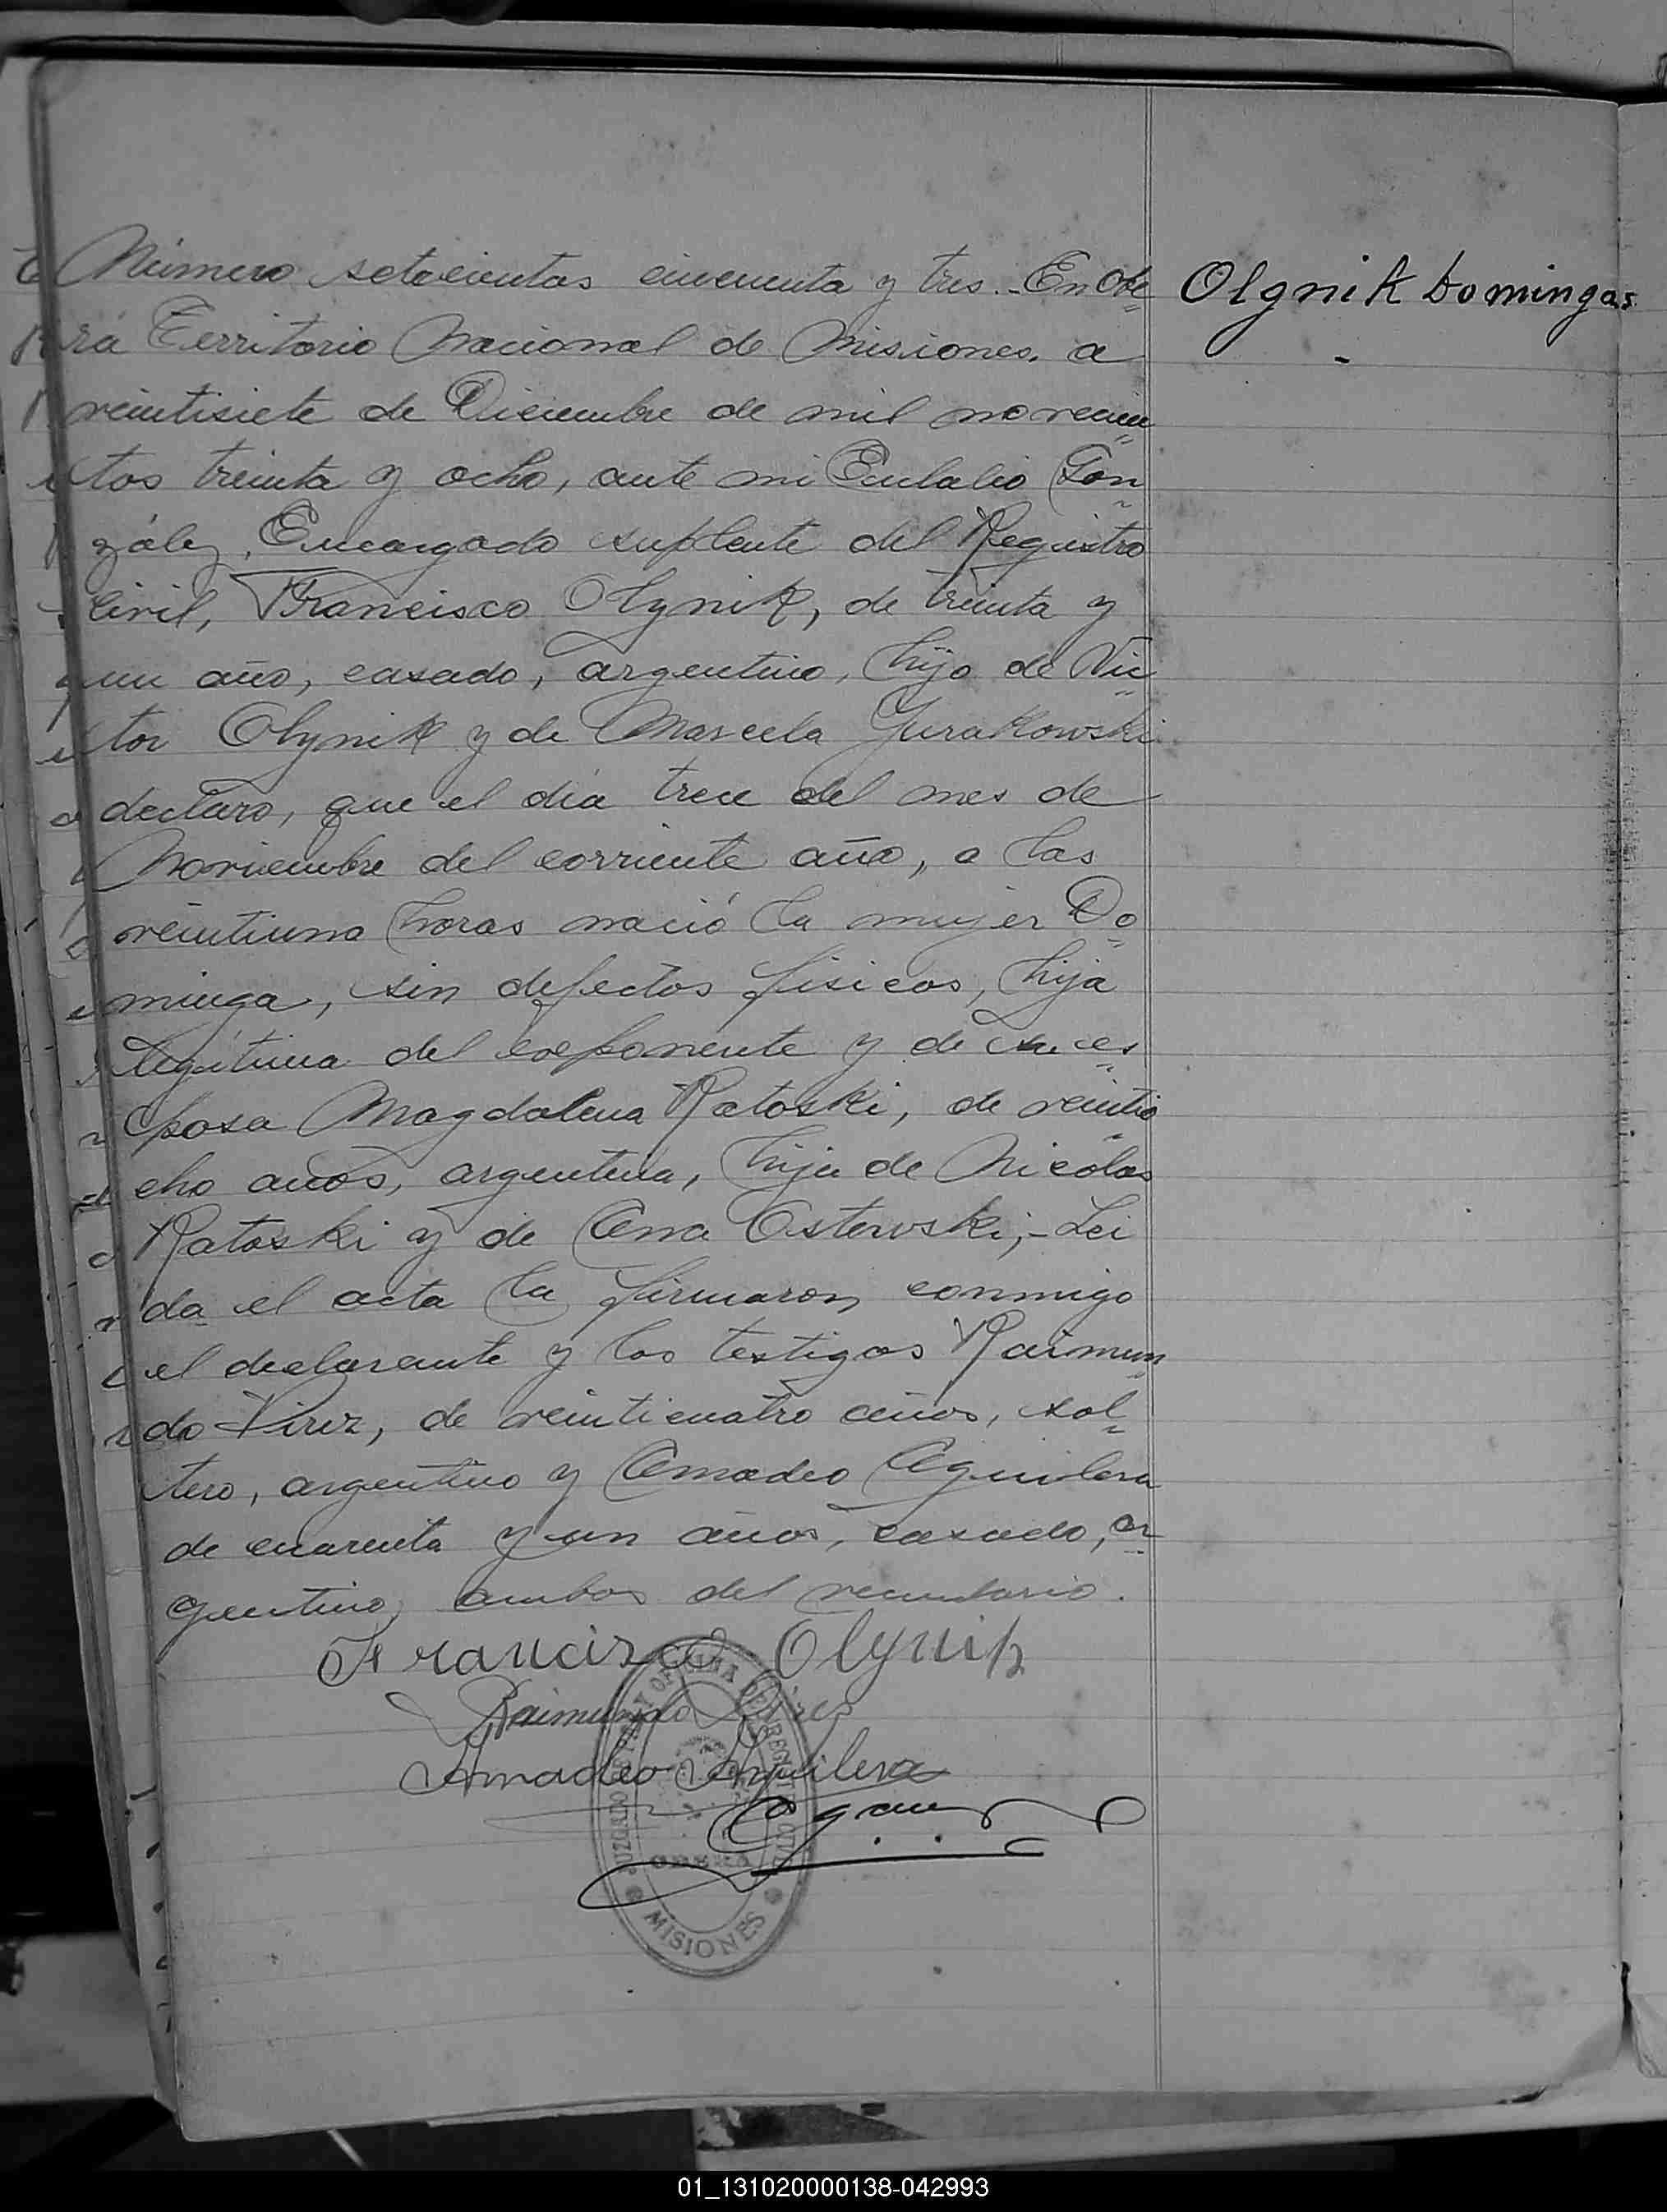 Número setecientos cincuenta y tres.-En Obe
rá Territorio Nacional de Misiones. a
veintisiete de Diciembre de mil novecien
tos treinta y ocho, ante mi Eulalio Gon
zález, Encargado suplente del Registro
Civil, Francisco Olynik, de treinta y
un año, casado, argentino, hijo de Víc
tor Olynik y de Marcela Jurakowski
declaro, que el día trece del mes de
Noviembre del corriente año, a las
veintiuna horas nació la mujer Do
minga, sin defectos físicos, hija
legítima del exponente y de su es
posa Magdalena Ratoski, de veintio
cho años, argentina, hija de Nicolás
Ratoski y de Ana Osterski,- Leí
da el acta la firmaron conmigo
el declarante y los testigos Raimun
do Pirez, de veinticuatro años, sol
tero, argentino y Amadeo Aguilera
de cuarenta y un años, casado, ar
gentino, ambos del vecindario.
Francisco Olynik
Raimundo Pires
Amadeo Aguilera
OBERÁ
MISIONES
Olgnik Domingas
01_131020000138-042993